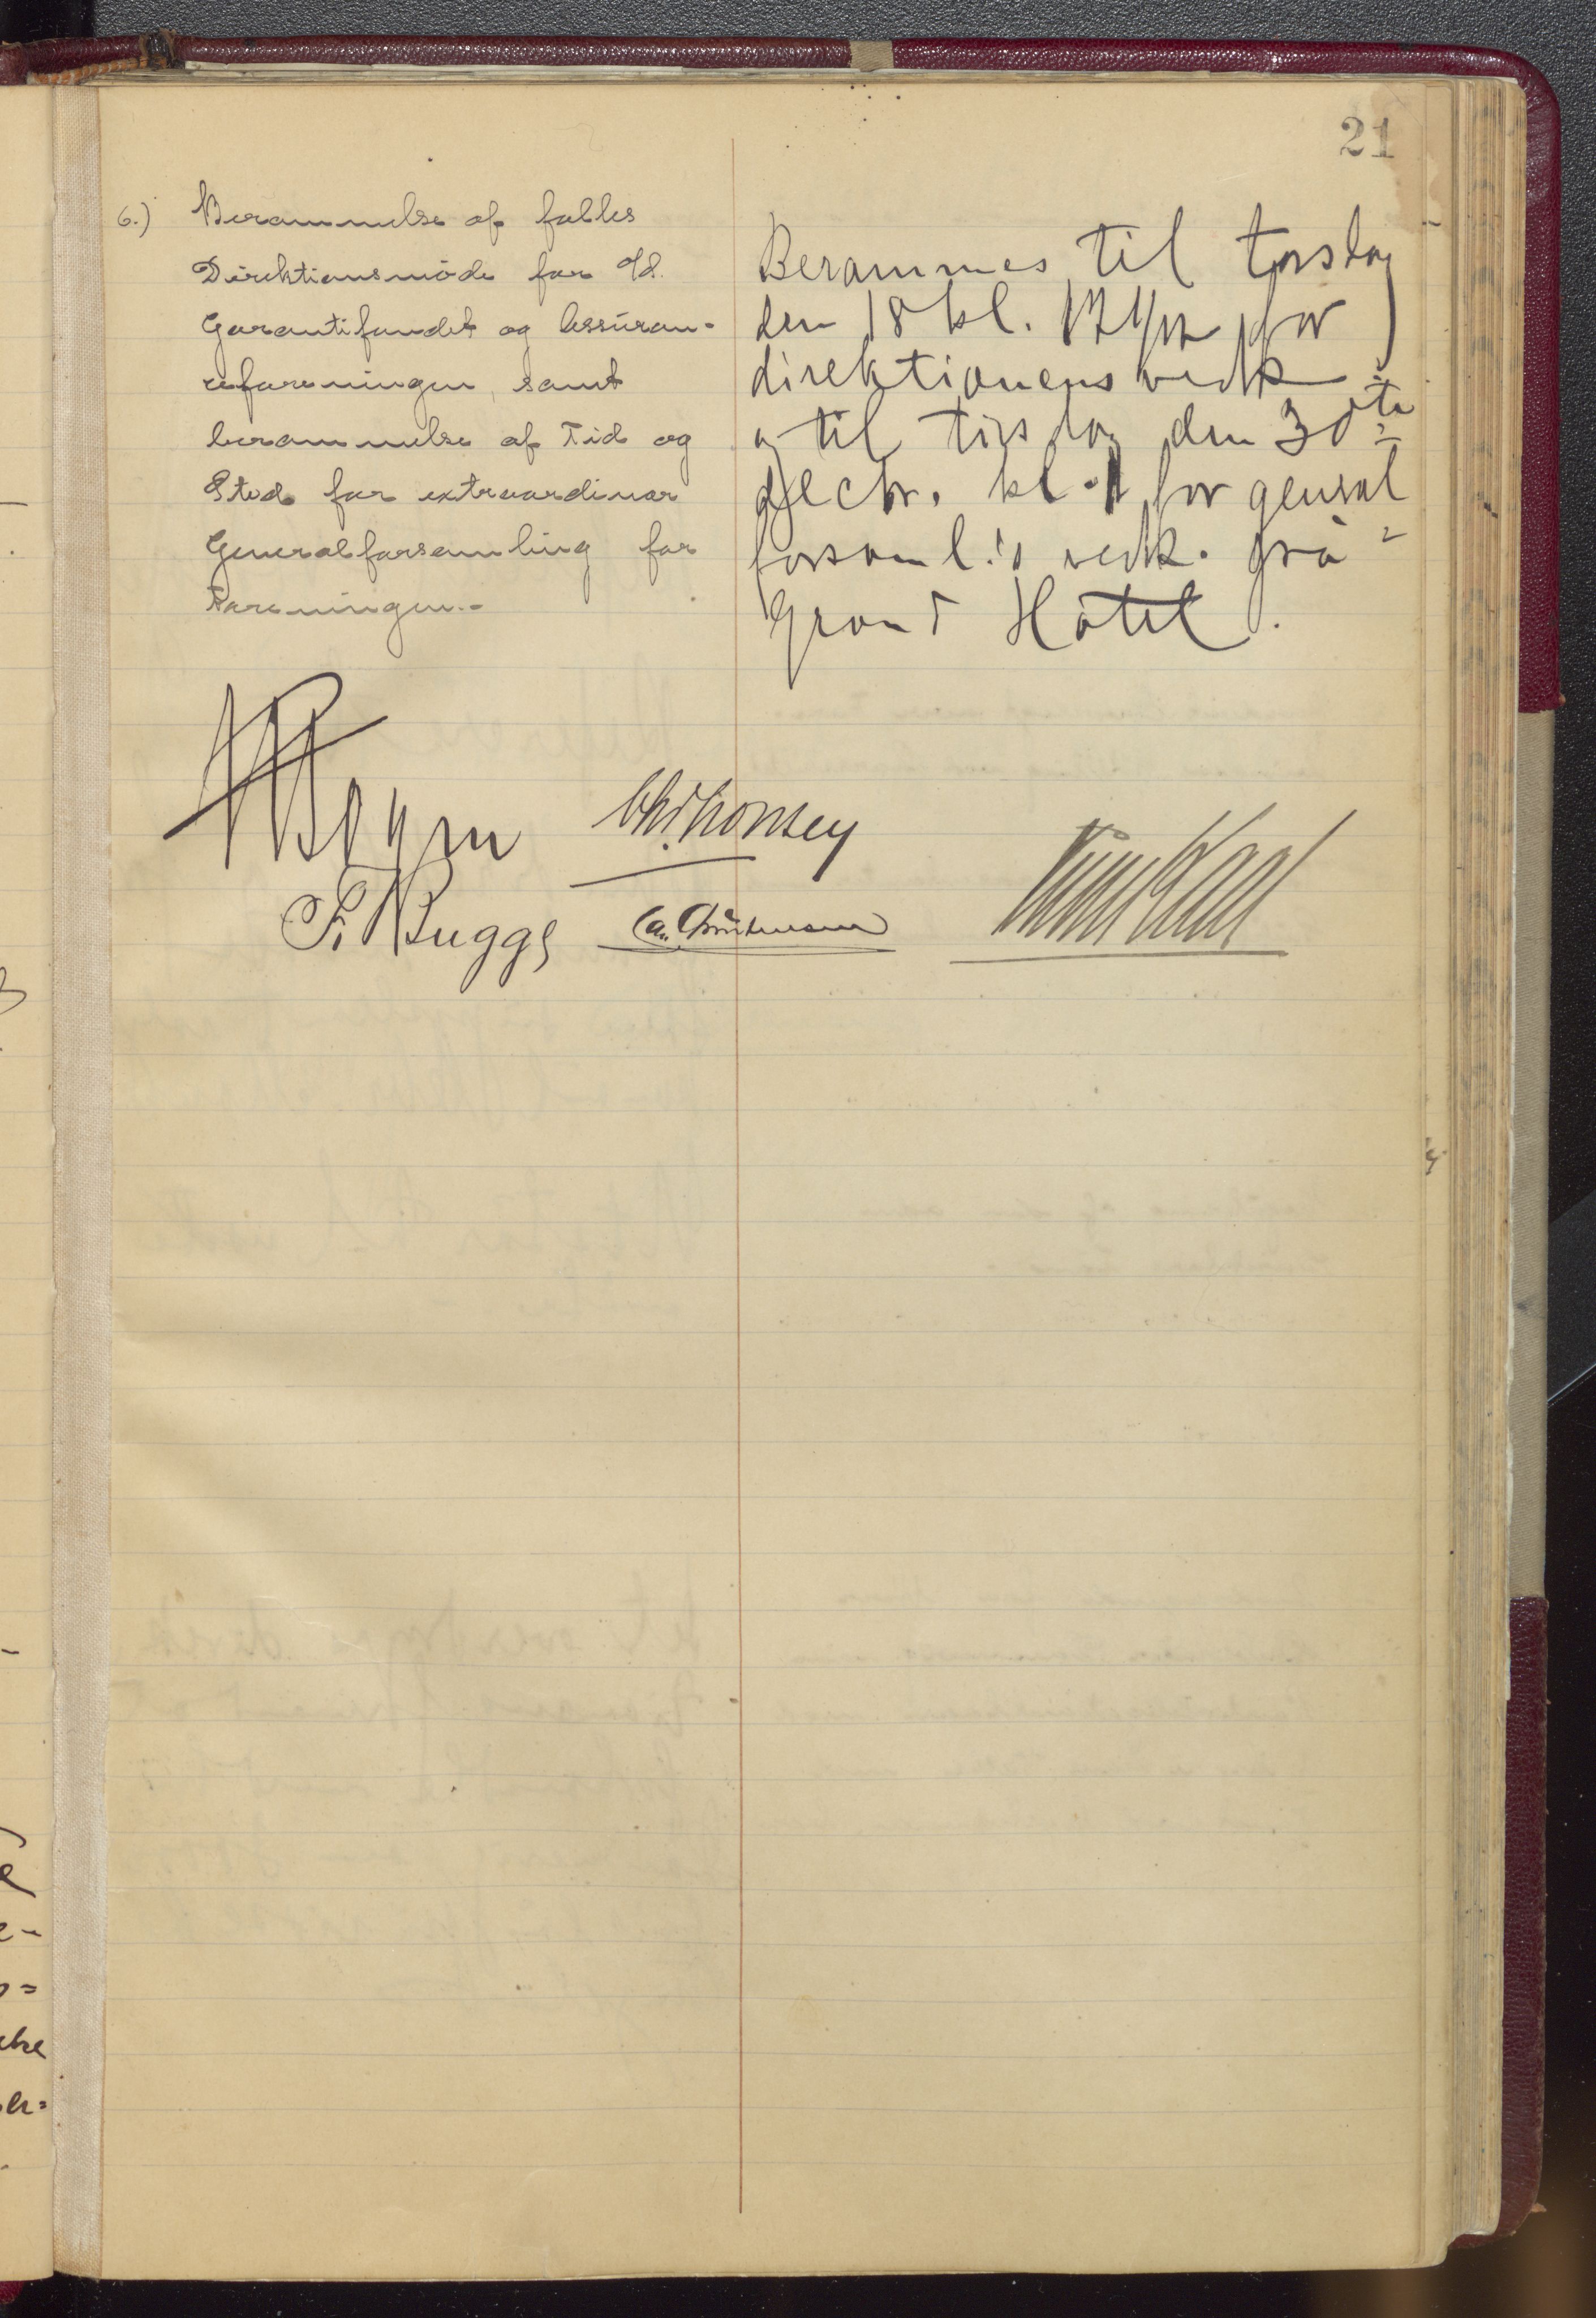 21
6.) Berammelse af fælles
Direktionsmöde for A/d.
Garantifondet og Assuran-
ceforeningen, samt
berammelse af Tid og
Sted for extraordinær
Generalforsamling for
Foreningen.-
Berammes til torsdag
den 18 kl. 12 1/2 for
direktionens vedk.
og til tirsdag den 30te
decbr. kl. 1 for general
forsaml.'s vedk. på
Grand Hôtel.
F. Bugge
Chr. Christensen